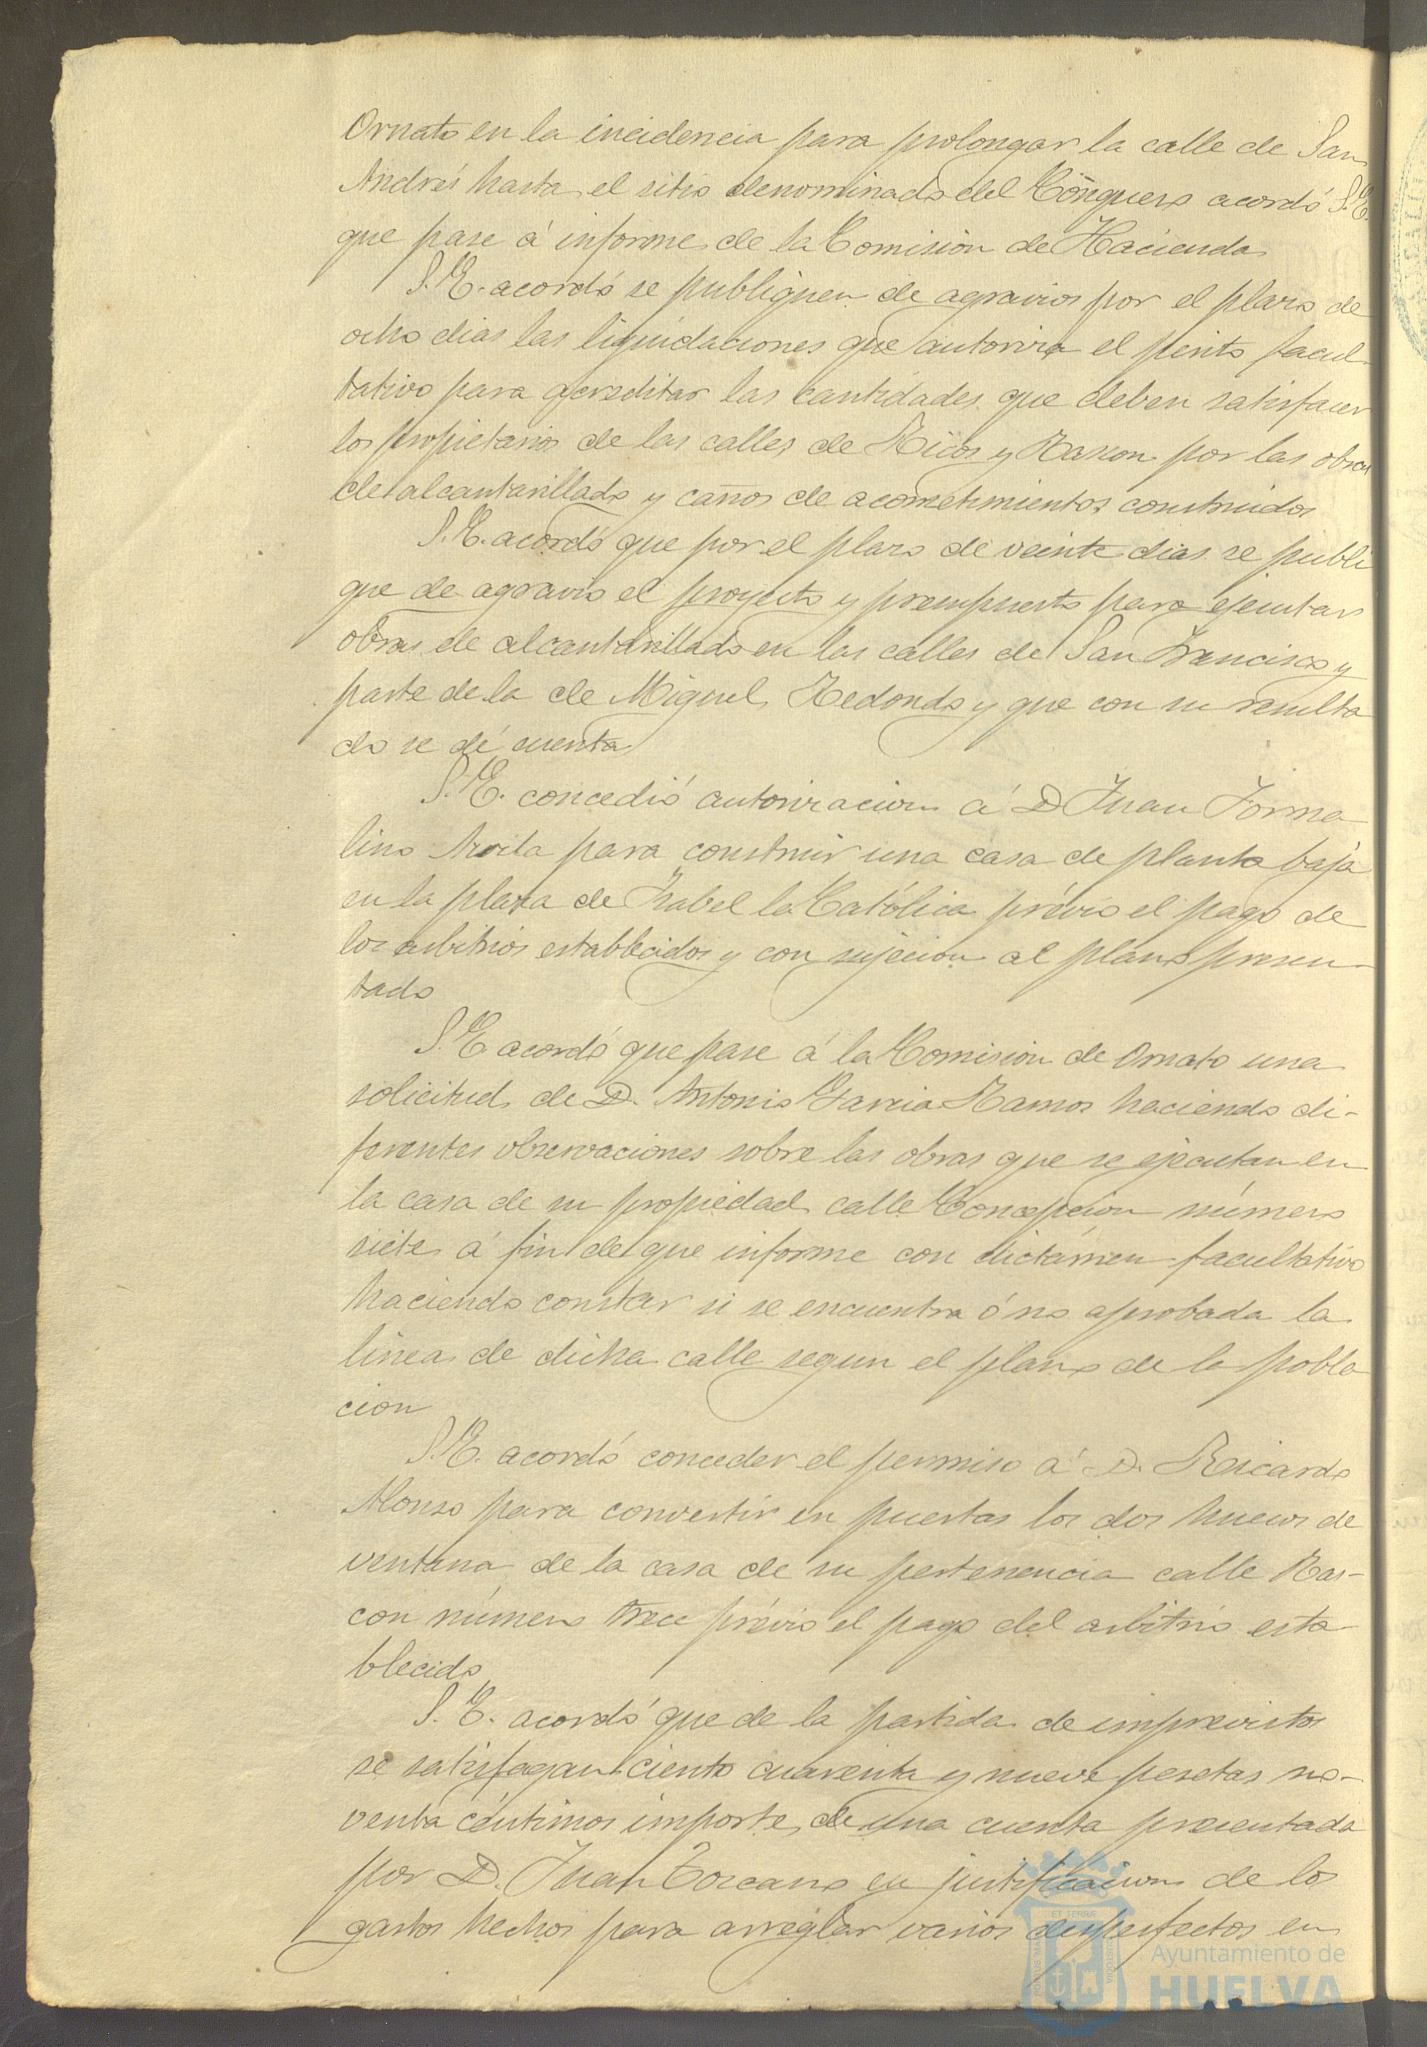 Ornato en la incidencia para prolongar la calle de San
Andrés hasta el sitio denominado del Conquero acordó S.E.
que pase á informe de la Comision de Hacienda
S.E. acordó se publiquen de agravios por el plazo de
ocho dias las liquidaciones que autoriza el perito facul-
tativo para acreditar las cantidades que deben satisfacer
los propietarios de las calles de Ricos y Rascon por las obras
de alcantarillado y caños de acometimientos construidos
S.E. acordó que por el plazo de veinte dias se publi
que de agravio el proyecto y presupuesto para ejecutar
obras de alcantarillado en las calles de San Francisco y
parte de la de Miguel Redondo y que con su resulta
do se dé cuenta
S.E. concedió autorizacion á D Juan Forna
lino para construir una casa de planta baja
en la plaza de Isabel la Católica prévio el pago de
los arbitrios establecidos y con sujecion al plano presen-
tado
S.E acordó que pase á la Comision de Ornato una
solicitud de D. Antonio Garcia Ramos haciendo di-
ferentes observaciones sobre las obras que se ejecutan en
la casa de su propiedad calle Concepcion número
siete á fin de que informe con dictámen facultativo
haciendo constar si se encuentra ó no aprobada la
linea de dicha calle segun el plano de la pobla
cion
S.E. acordó conceder el permiso á D. Ricardo
Alonso para convertir en puertas los dos huecos de
ventana de la casa de su pertenencia calle Ras-
con número trece prévio el pago del arbitrio esta
blecido
S.E. acordó que de la partida de imprevistos
se satisfagan ciento cuarenta y nueve pesetas no-
venta céntimos importe de una cuenta presentada
por D. Juan Toscano en justificacion de los
gastos hechos para arreglar varios desperfectos en
Ayuntamiento de
HUELVA